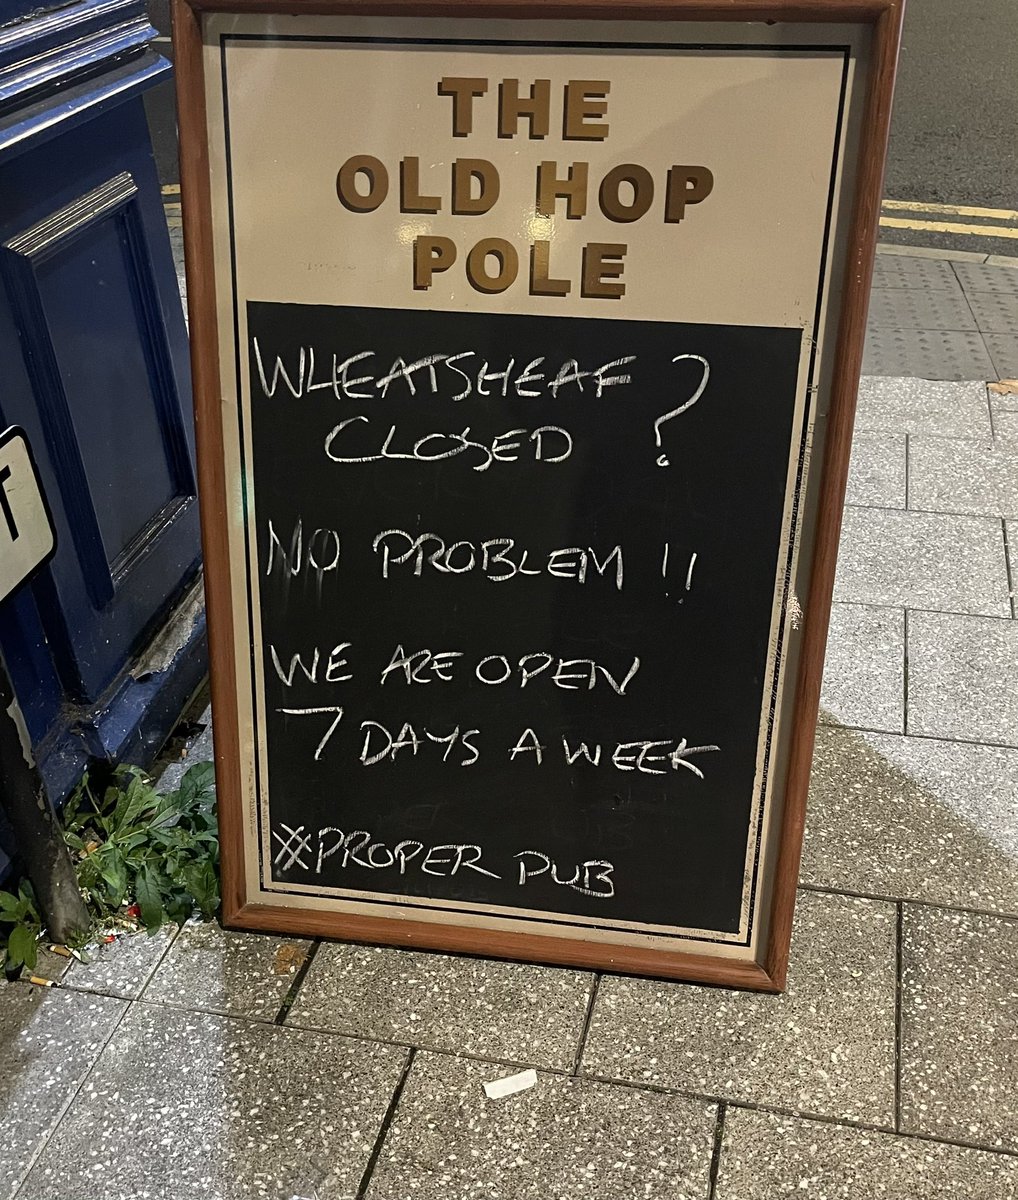 THE
OLD HOP
POLE
WHEATSHEAF ?
CLOSED
NO PROBLEM !!
WE ARE OPEN
7 DAYS A WEEK
#PROPER PUB
T